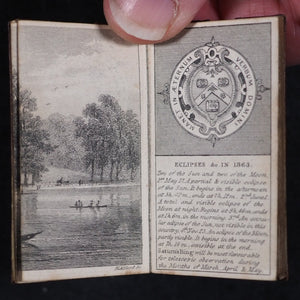 MANET IN ÆTERNUM
VERBUM DOMINI
ECLIPSES &c IN 1863.
Two of the Sun and two of the Moon.
1st May 17. A partial & visible eclipse
of the Sun. It begins in the afternoon
at 5h. ends at 7h. 2nd June 1
A total and visible eclipse of the
Moon at night. Begins at
at 1h. in the morning. 3rd An annu-
lar eclipse of the Sun, not visible in this
country. 4th Nov. 25. An eclipse of the Moon,
partly visible. It begins in the morning
at 7h. invisible at the end.
Saturn's Ring will be most favourable
for telescopic observation during
the Months of March April & May.